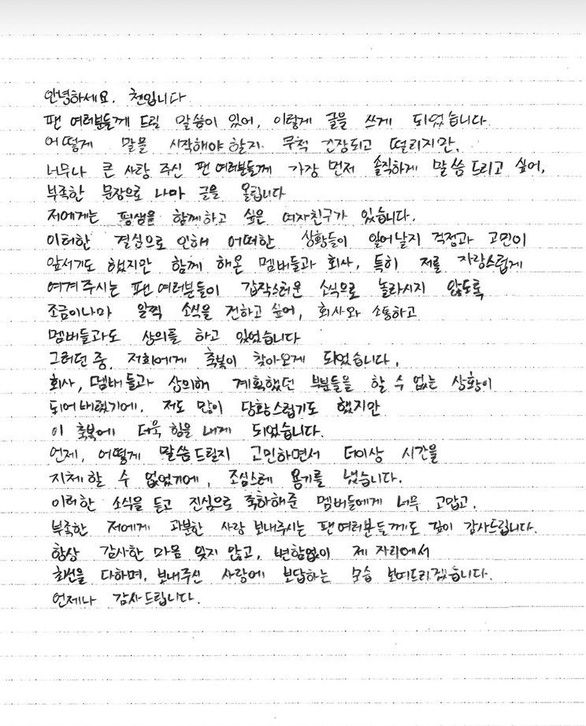 안녕하세요. 첸입니다
팬 여러분들께 드릴 말씀이 있어, 이렇게 글을 쓰게 되었습니다
어떻게 말을 시작해야 할지 무척 긴장되고 떨리지만,
너무나 큰 사랑 주신 팬 여러분들께 가장 먼저 솔직하게 말씀 드리고 싶어,
부족한 문장으로 나마 글을 올립니다
저에게는 평생을 함께하고 싶은 여자친구가 있습니다.
이러한 결심으로 인해 어떠한 상황들이 일어날지 걱정과 고민이
앞서기도 했지만 함께 해온 멤버들과 회사, 특히 저를 자랑스럽게
여겨주시는 팬 여러분들이 갑작스러운 소식으로 놀라시지 않도록
조금이나마 일찍 소식을 전하고 싶어, 회사와 소통하고
멤버들과도 상의를 하고 있었습니다
그러던 중, 저희에게 축복이 찾아오게 되었습니다.
회사, 멤버들과 상의해 계획했던 부분들을 할 수 없는 상황이
되어버렸기에, 저도 많이 당황스럽기도 했지만
이 축복에 더욱 힘을 내게 되었습니다.
언제, 어떻게 말씀 드릴지 고민하면서 더이상 시간을
지체할 수 없었기에, 조심스레 용기를 냈습니다.
이러한 소식을 듣고 진심으로 축하해준 멤버들에게 너무 고맙고,
부족한 저에게 과분한 사랑 보내주시는 팬 여러분들께도 깊이 감사드립니다.
항상 감사한 마음 잊지 않고, 변함없이 제 자리에서
최선을 다하며, 보내주신 사랑에 보답하는 모습 보여드리겠습니다.
언제나 감사드립니다.